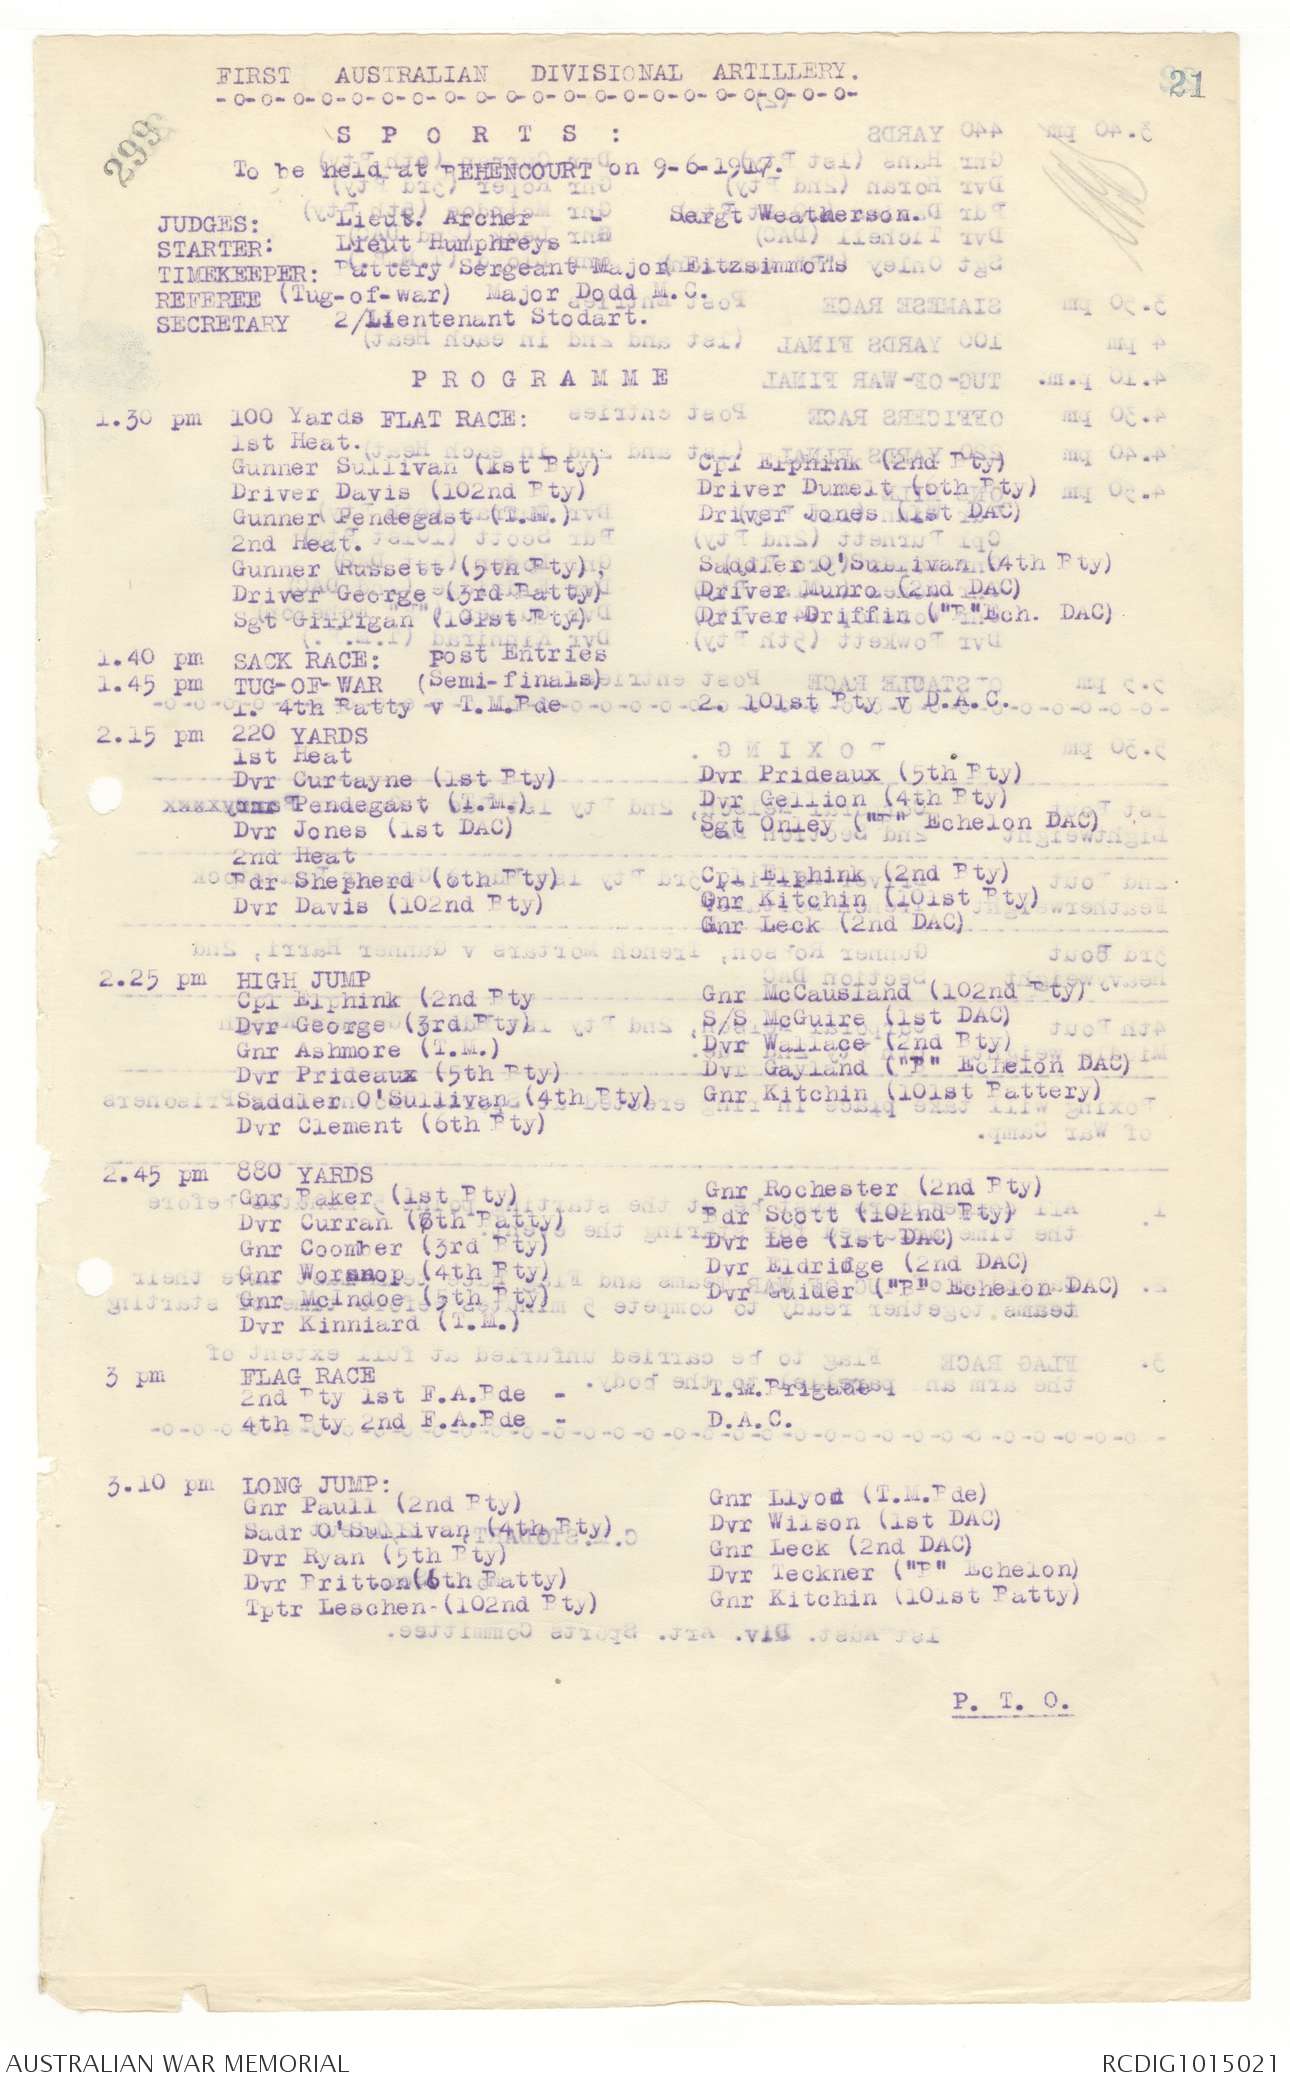 FIRST AUSTRALIAN DIVISIONAL ARTILLERY.
-o-o-o-o-o-o-o-o-o-o-o-o-o-o-o-o-o-o-o-o-o-
21
299
S P O R T S :
To be held at BEHENCOURT on 9-6-1917.
JUDGES: Lieut. Archer - Sergt Weatherson.
STARTER: Lieut Humphreys
TIMEKEEPER: Battery Sergeant Major Fitzsimmons
REFEREE (Tug-of-war) Major Dodd M.C.
SECRETARY 2/Lientenant Stodart.
P R O G R A M M E
1.30 pm 100 Yards FLAT RACE:
1st Heat.
Gunner Sullivan (1st Bty) Cpl Elphink (2nd Bty)
Driver Davis (102nd Bty) Driver Dumelt (6th Bty)
Gunner Pendegast (T.M.) Driver Jones (1st DAC)
2nd Heat.
Gunner Russett (5th Bty), Saddler O'Sullivan (4th Bty)
Driver George (3rd Batty) Driver Munro (2nd DAC)
Sgt Gilligan (101st Bty) Driver Driffin ("B" Ech. DAC)
1.40 pm SACK RACE: Post Entries
1.45 pm TUG-OF-WAR (Semi-finals)
1. 4th Batty v T.M.Bde 2. 101st Bty v D.A.C.
2.15 pm 220 YARDS
1st Heat
Dvr Curtayne (1st Bty) Dvr Prideaux (5th Bty)
Pendegast (T.M.) Dvr Gellion (4th Bty)
Dvr Jones (1st DAC) Sgt Onley ("B" Echelon DAC)
2nd Heat
Bdr Shepherd (6th Bty) Cpl Elphink (2nd Bty)
Dvr Davis (102nd Bty) Gnr Kitchin (101st Bty)
Gnr Leck (2nd DAC)
2.25 pm HIGH JUMP
Cpl Elphink (2nd Bty Gnr McCausland (102nd Bty)
Dvr George (3rd Bty) S/S McGuire (1st DAC)
Gnr Ashmore (T.M.) Dvr Wallace (2nd Bty)
Dvr Prideaux (5th Bty) Dvr Gayland ("B" Echelon DAC)
Saddler O'Sullivan (4th Bty) Gnr Kitchin (101st Battery)
Dvr Clement (6th Bty)
2.45 pm 880 YARDS
Gnr Baker (1st Bty) Gnr Rochester (2nd Bty)
Dvr Curran (6th Batty) Bdr Scott (102nd Bty)
Gnr Coomber (3rd Bty) Dvr Lee (1st DAC)
Gnr Worsnop (4th Bty) Dvr Eldridge (2nd DAC)
Gnr McIndoe (5th Bty) Dvr Guider ("B" Echelon DAC)
Dvr Kinniard (T.M.)
3 pm FLAG RACE
2nd Bty 1st F.A.Bde - T.M.Brigade
4th Bty 2nd F.A.Bde - D.A.C.
3.10 pm LONG JUMP:
Gnr Paull (2nd Bty) Gnr Llyod (T.M.Bde)
Sadr O'Sullivan (4th Bty) Dvr Wilson (1st DAC)
Dvr Ryan (5th Bty) Gnr Leck (2nd DAC)
Dvr Britton (6th Batty) Dvr Teckner ("B" Echelon)
Tptr Leschen-(102nd Bty) Gnr Kitchin (101st Batty)
P. T. O.
AUSTRALIAN WAR MEMORIAL RCDIG1015021